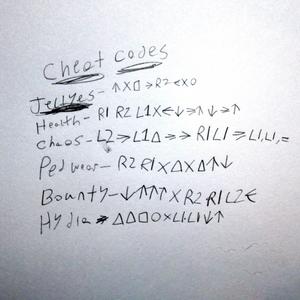 Cheat Codes
Jettyes- ↑X□→R2←XO
Health- R1 R2 L1X←↓→↑↓→↑
Chaos- L2→L1△→→R1L1→L1,L1,=
Ped wear- R2R1X△X△↑↓
Bounty-↓↑↑↑XR2R1L2←
Hydia →△△□OXL1L1↓↑